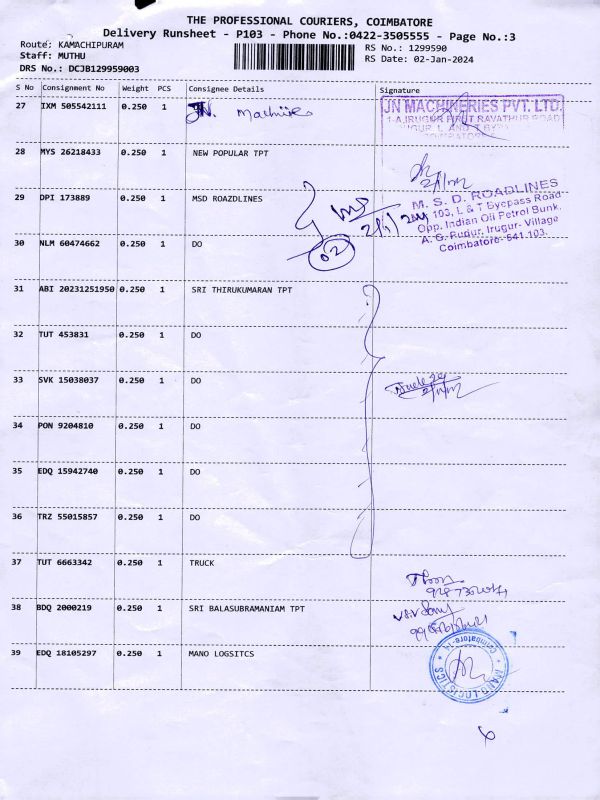 THE PROFESSIONAL COURIERS, COIMBATORE
Delivery Runsheet - P103 - Phone No.:0422-3505555 - Page No.:3
Route: KAMACHIPURAM
RS No.: 1299590
Staff: MUTHU
RS Date: 02-Jan-2024
DRS No.: DCJB129959003
S No Consignment No Weight PCS Consignee Details Signature
27 IXM 505542111 0.250 1 JN. Machine
JN MACHINERIES PVT. LTD.
28 MYS 26218433 0.250 1 NEW POPULAR TPT
29 DPI 173889 0.250 1 MSD ROAZDLINES
M. S. D. ROADLINES
103, L & T Byepass Road
Opp. Indian Oil Petrol Bunk,
A. G. Pudur, Irugur- Village
Coimbatore- 641 103.
02
30 NLM 60474662 0.250 1 DO
31 ABI 20231251950 0.250 1 SRI THIRUKUMARAN TPT
32 TUT 453831 0.250 1 DO
33 SVK 15038037 0.250 1 DO
34 PON 9204810 0.250 1 DO
35 EDQ 15942740 0.250 1 DO
36 TRZ 55015857 0.250 1 DO
37 TUT 6663342 0.250 1 TRUCK
38 BDQ 2000219 0.250 1 SRI BALASUBRAMANIAM TPT
39 EDQ 18105297 0.250 1 MANO LOGSITCS
MANO LOGISTICS
Coimbatore-14